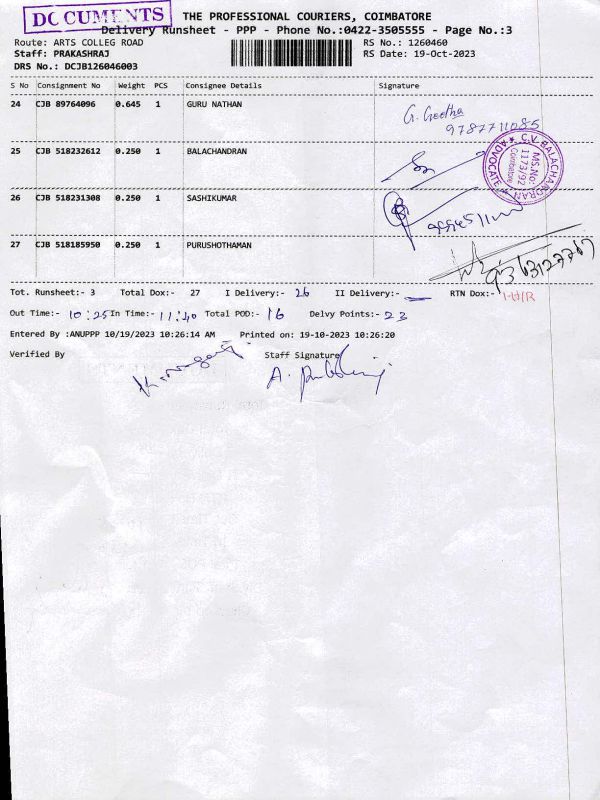 DOCUMENTS
THE PROFESSIONAL COURIERS, COIMBATORE
Delivery Runsheet - PPP - Phone No.:0422-3505555 - Page No.:3
Route: ARTS COLLEG ROAD RS No.: 1260460
Staff: PRAKASHRAJ RS Date: 19-Oct-2023
DRS No.: DCJB126046003
S No Consignment No Weight PCS Consignee Details Signature
24 CJB 89764096 0.645 1 GURU NATHAN G. Geetha
9787711085
25 CJB 518232612 0.250 1 BALACHANDRAN
C.V. BALACHANDRAN ★ ADVOCATE ★
MS.No:
1173/92
Coimbatore
26 CJB 518231308 0.250 1 SASHIKUMAR
27 CJB 518185950 0.250 1 PURUSHOTHAMAN
Tot. Runsheet:- 3 Total Dox:- 27 I Delivery:- 26 II Delivery:- — RTN Dox:-
Out Time:- 10:25 In Time:- 11:40 Total POD:- 16 Delvy Points:- 23
Entered By :ANUPPP 10/19/2023 10:26:14 AM Printed on: 19-10-2023 10:26:20
Verified By Staff Signature